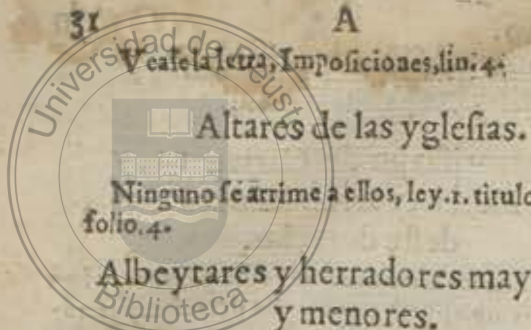 31 A
Vease la letra, Imposiciones, lin. 4.
Altares de las yglesias.
Ninguno se arrime a ellos, ley. 1. titulo
folio. 4.
Albeytares y herradores may
y menores.
Universidad de Deusto
Biblioteca